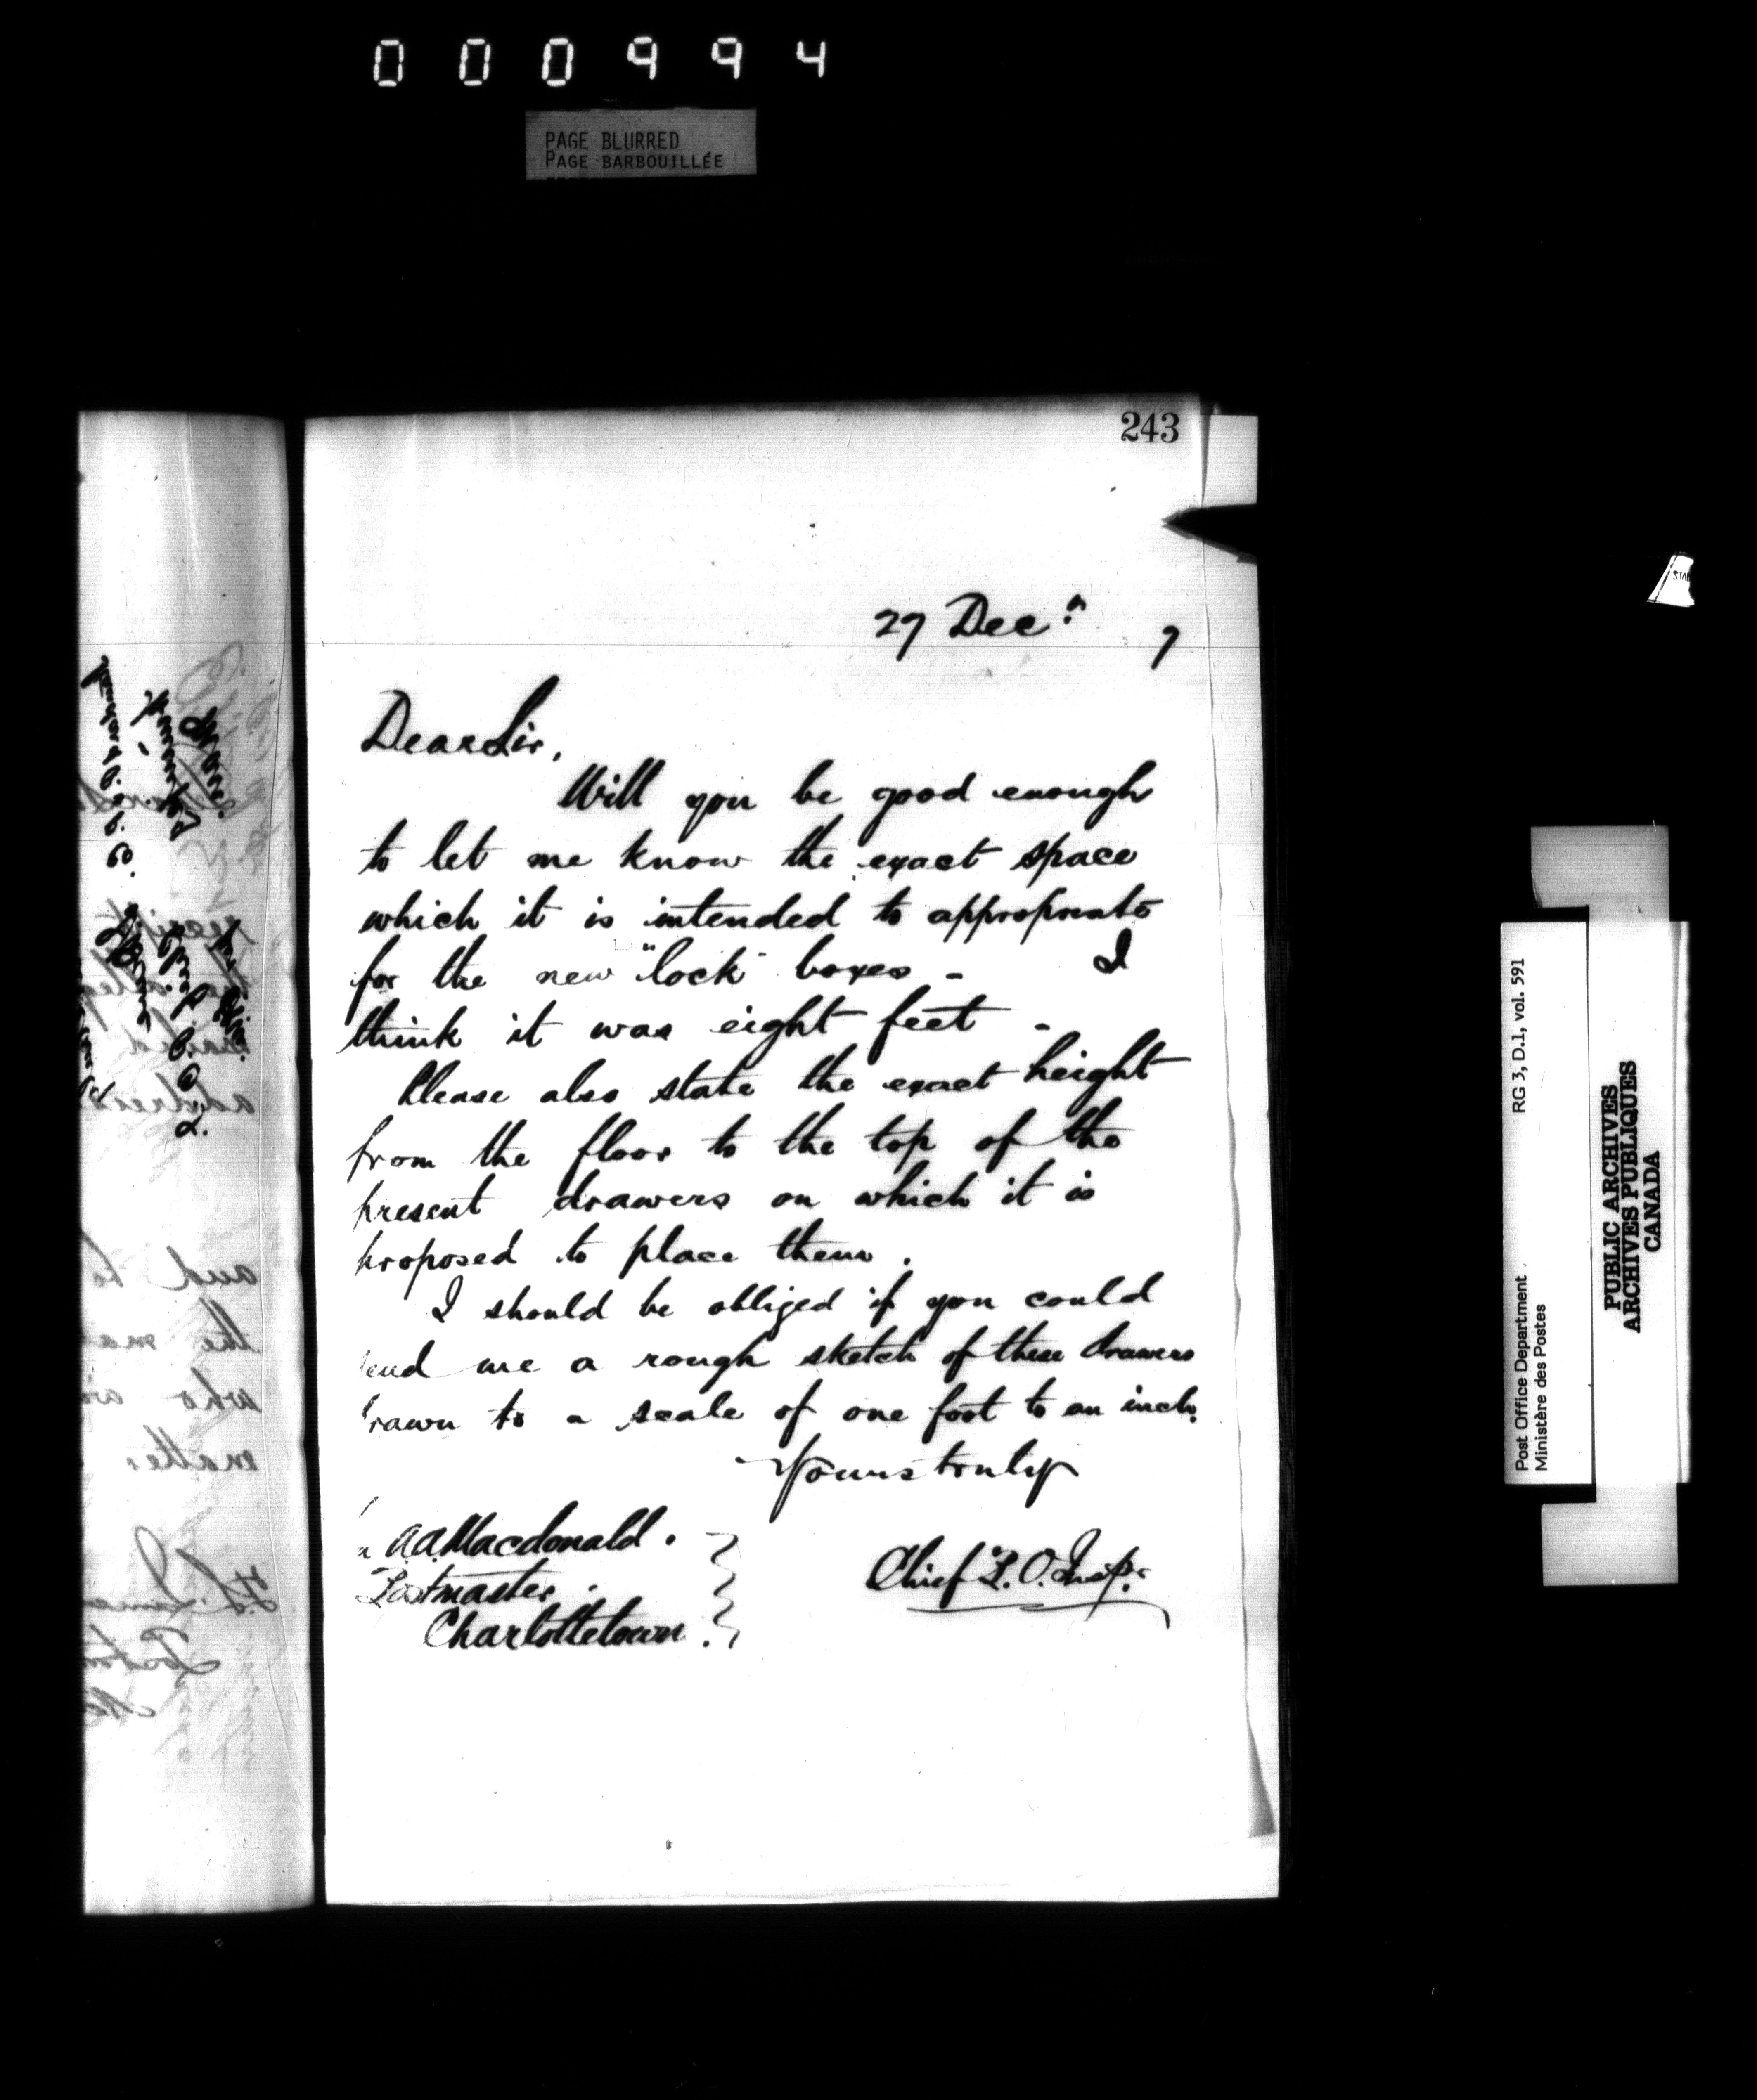 000994
PAGE BLURRED
PAGE BARBOUILLÉE
243
27 Decr. 7
Dear Sir,
Will you be good enough
to let me know the exact space
which it is intended to appropriate
for the new "lock" boxes - I
think it was eight feet -
Please also state the exact height
from the floor to the top of the
present drawers on which it is
proposed to place them.
I should be obliged if you could
send me a rough sketch of these drawers
drawn to a scale of one foot to an inch.
Yours truly
A.A. Macdonald.
Postmaster.
Charlottetown.
Chief P.O. Inspr.
Post Office Department
Ministère des Postes
RG 3, D.1, vol. 591
PUBLIC ARCHIVES
ARCHIVES PUBLIQUES
CANADA